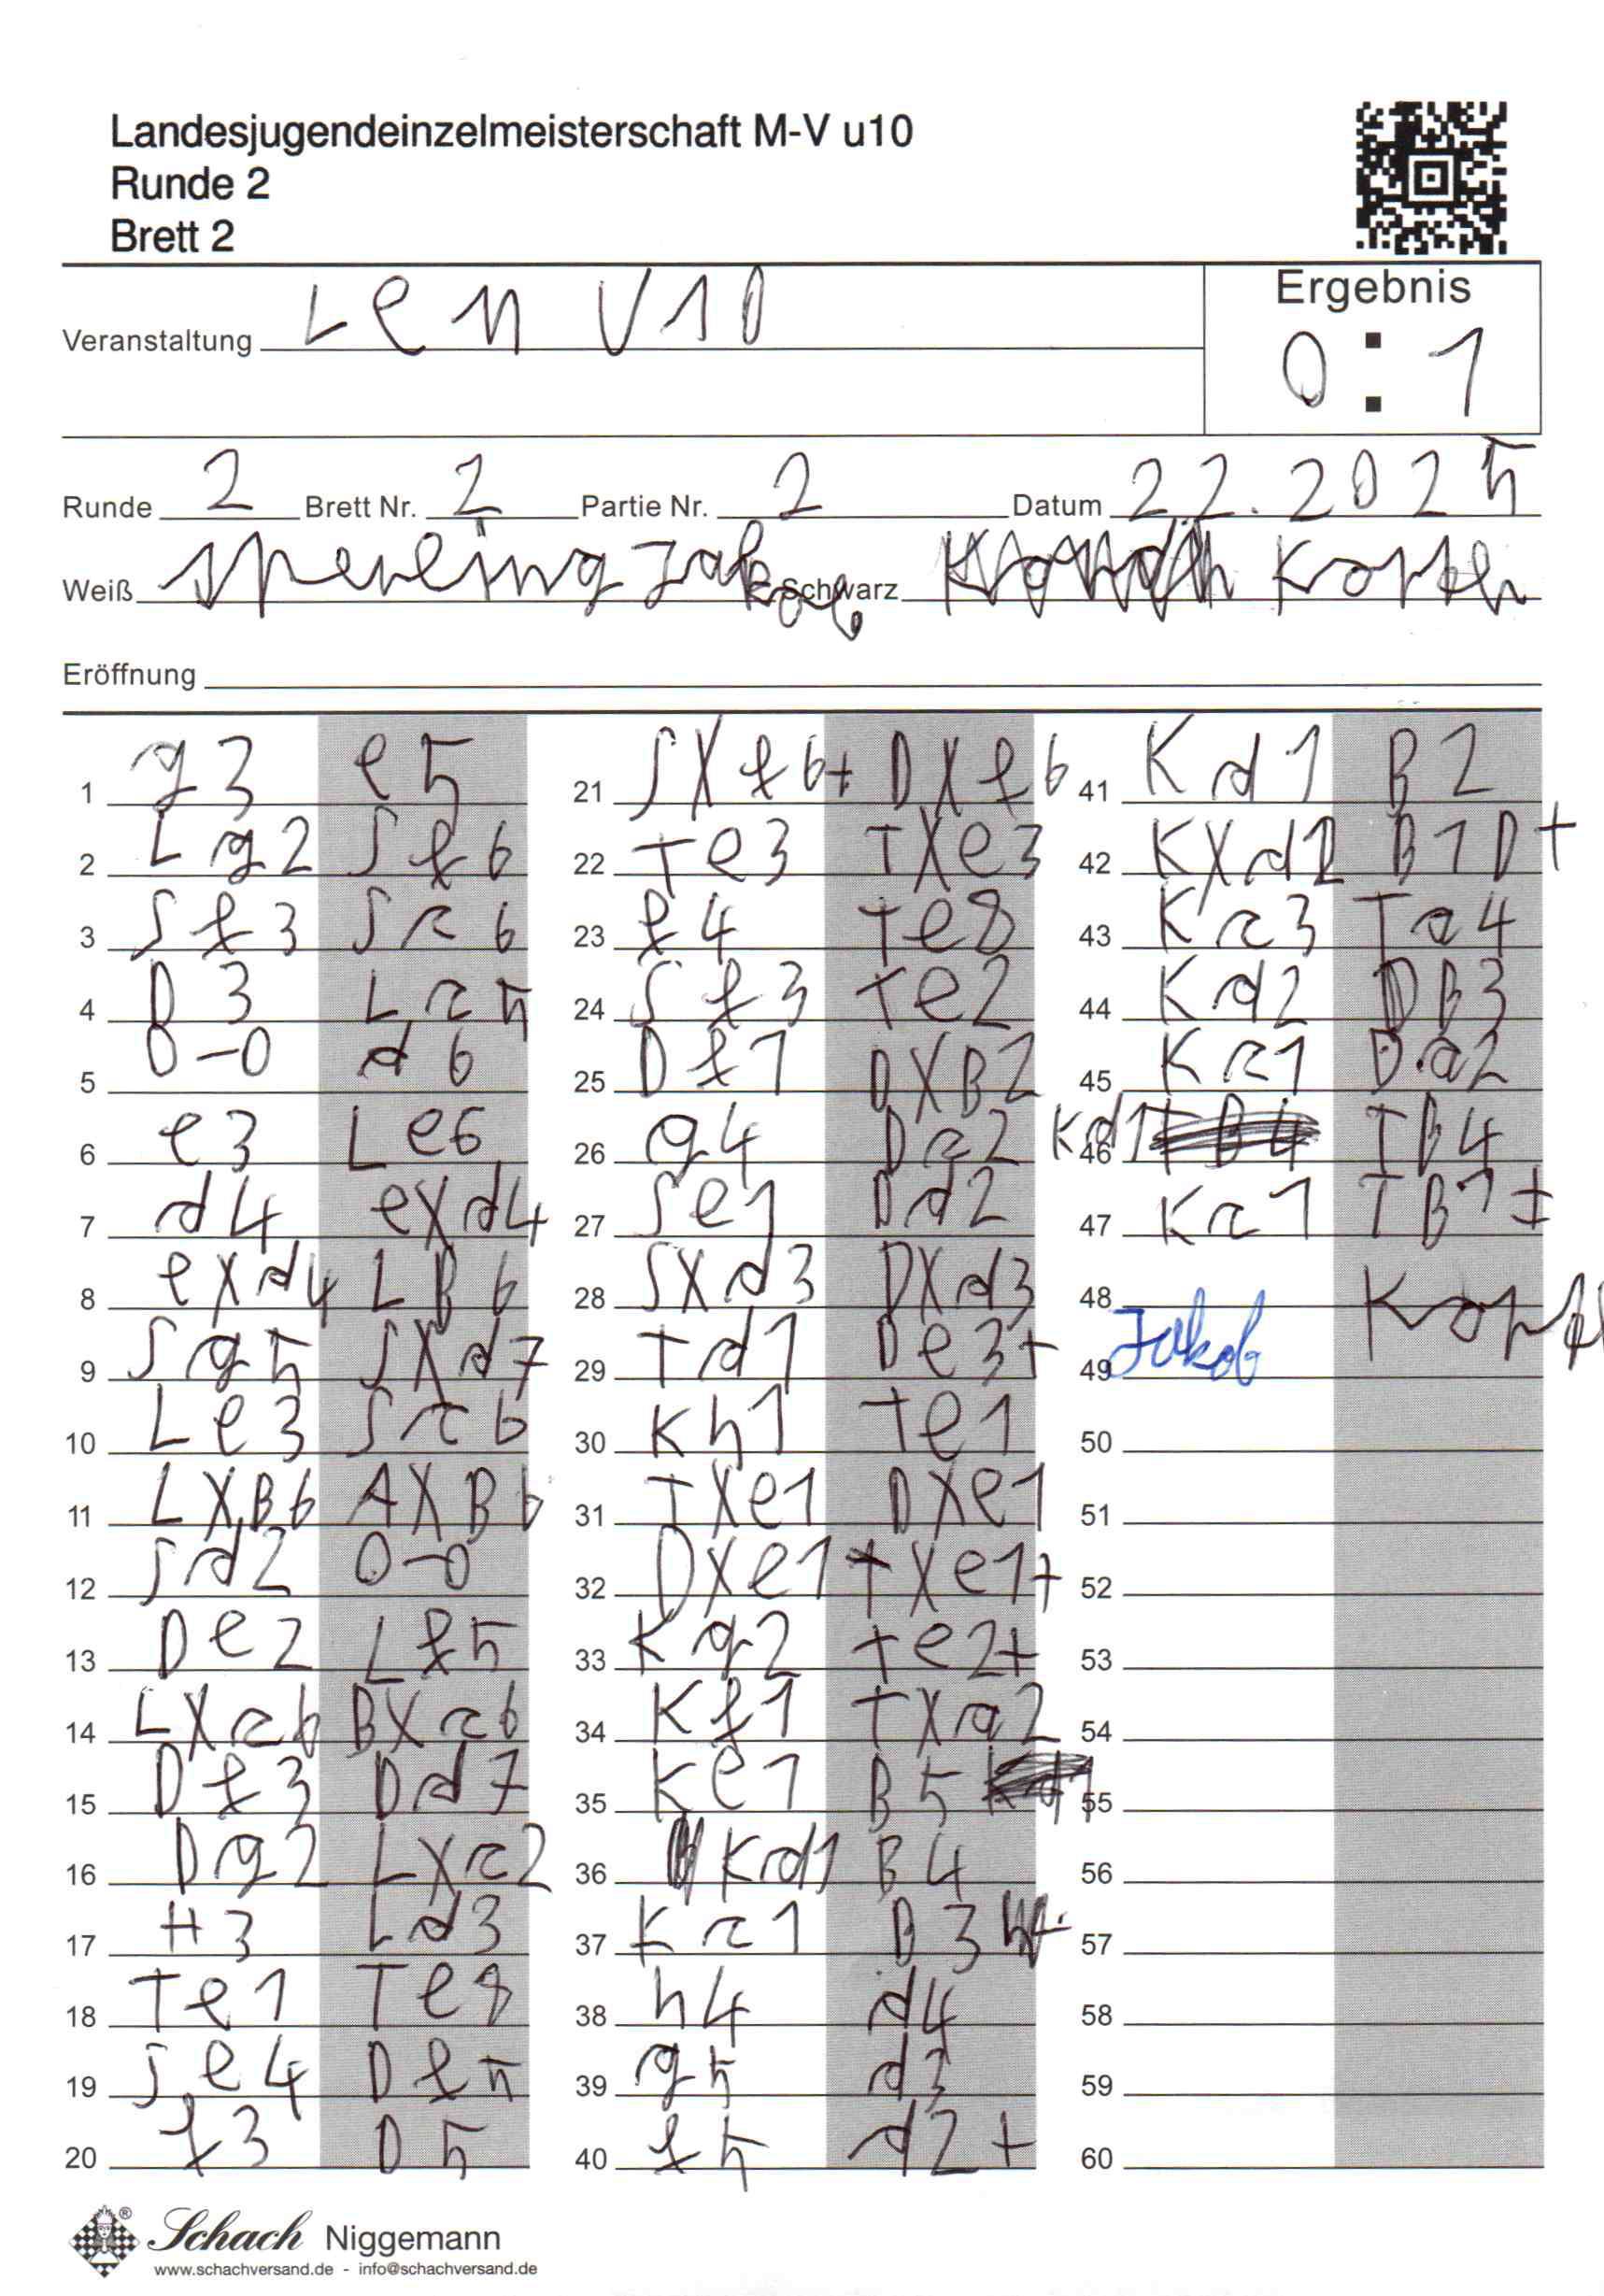 Landesjugendeinzelmeisterschaft M-V u10
Runde 2
Brett 2
Ergebnis
0 : 1
Veranstaltung LEM U10
Runde 2 Brett Nr. 2 Partie Nr. 2 Datum 22.2025
Weiß Sperling Jakob Schwarz
Eröffnung
1 g3 e5
2 Lg2 Sf6
3 Sf3 Sc6
4 D3 Lc5
5 0-0 d6
6 e3 Le6
7 d4 exd4
8 exd4 LB6
9 Sg5 SXd7
10 Le3 Sc6
11 LXB6 AXB6
12 Sd2 0-0
13 De2 Lf5
14 LXc6 BXc6
15 Df3 Dd7
16 Dg2 LXc2
17 H3 Ld3
18 Te1 Te8
19 Se4 Df5
20 f3 D5
21 SXf6+ DXf6
22 Te3 TXe3
23 f4 Te8
24 Sf3 Te2
25 Df1 DXB2
26 g4 Dc2
27 Se1 Dd2
28 SXd3 DXd3
29 Td1 De3+
30 Kh1 Te1
31 TXe1 DXe1
32 DXe1 TXe1+
33 Kg2 Te2+
34 Kf1 TXa2
35 Ke1 B5
36 Kd1 B4
37 Kc1 B3
38 h4 d4
39 g5 d3
40 f5 d2+
41 Kd1 B2
42 KXd2 B1D+
43 Kc3 Ta4
44 Kd2 DB3
45 Kc1 Da2
46 Kd1 TB4
47 Kc1 TB1±
48
49 Jakob
50
51
52
53
54
55
56
57
58
59
60
Schach Niggemann
www.schachversand.de - info@schachversand.de